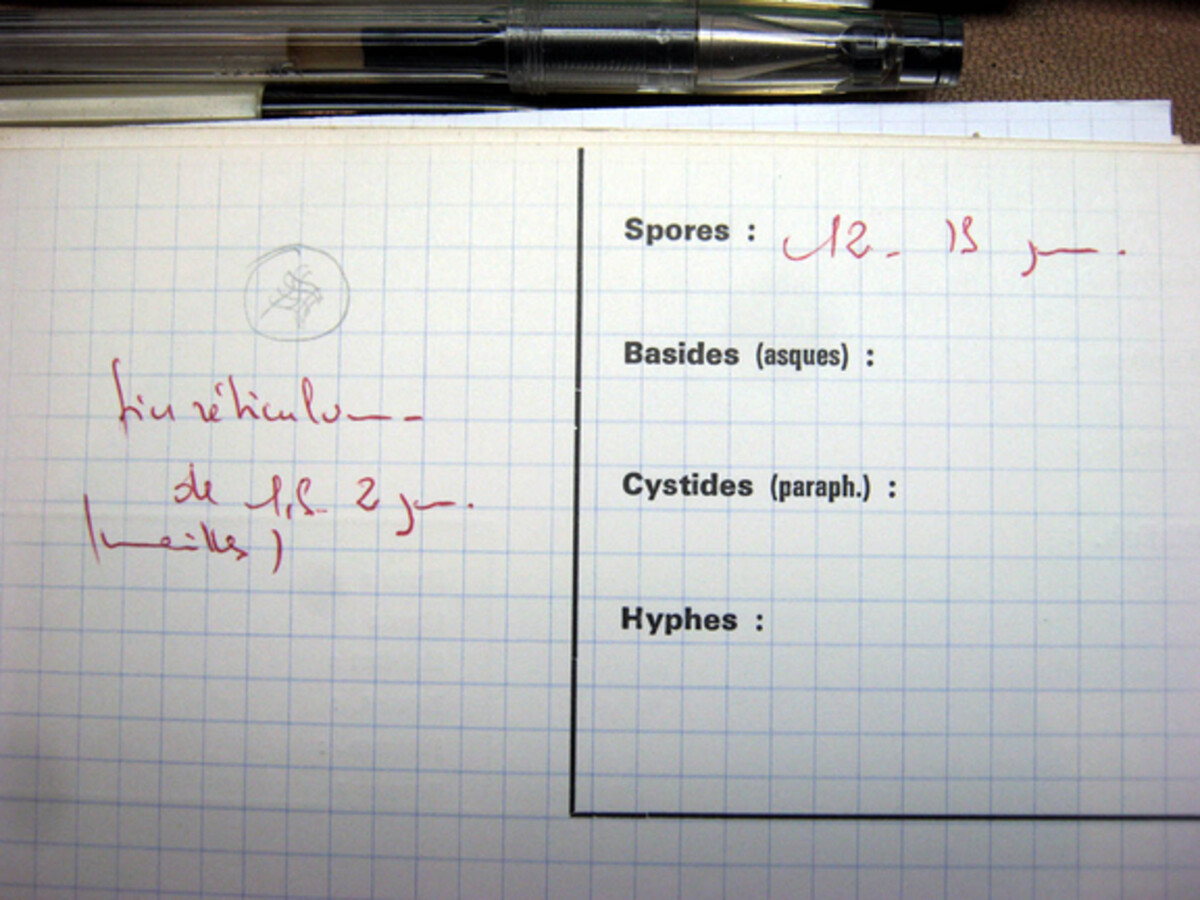 fin réticulum
de 1,5-2 µm.
(mailles)
Spores : 12-13 µm.
Basides (asques) :
Cystides (paraph.) :
Hyphes :